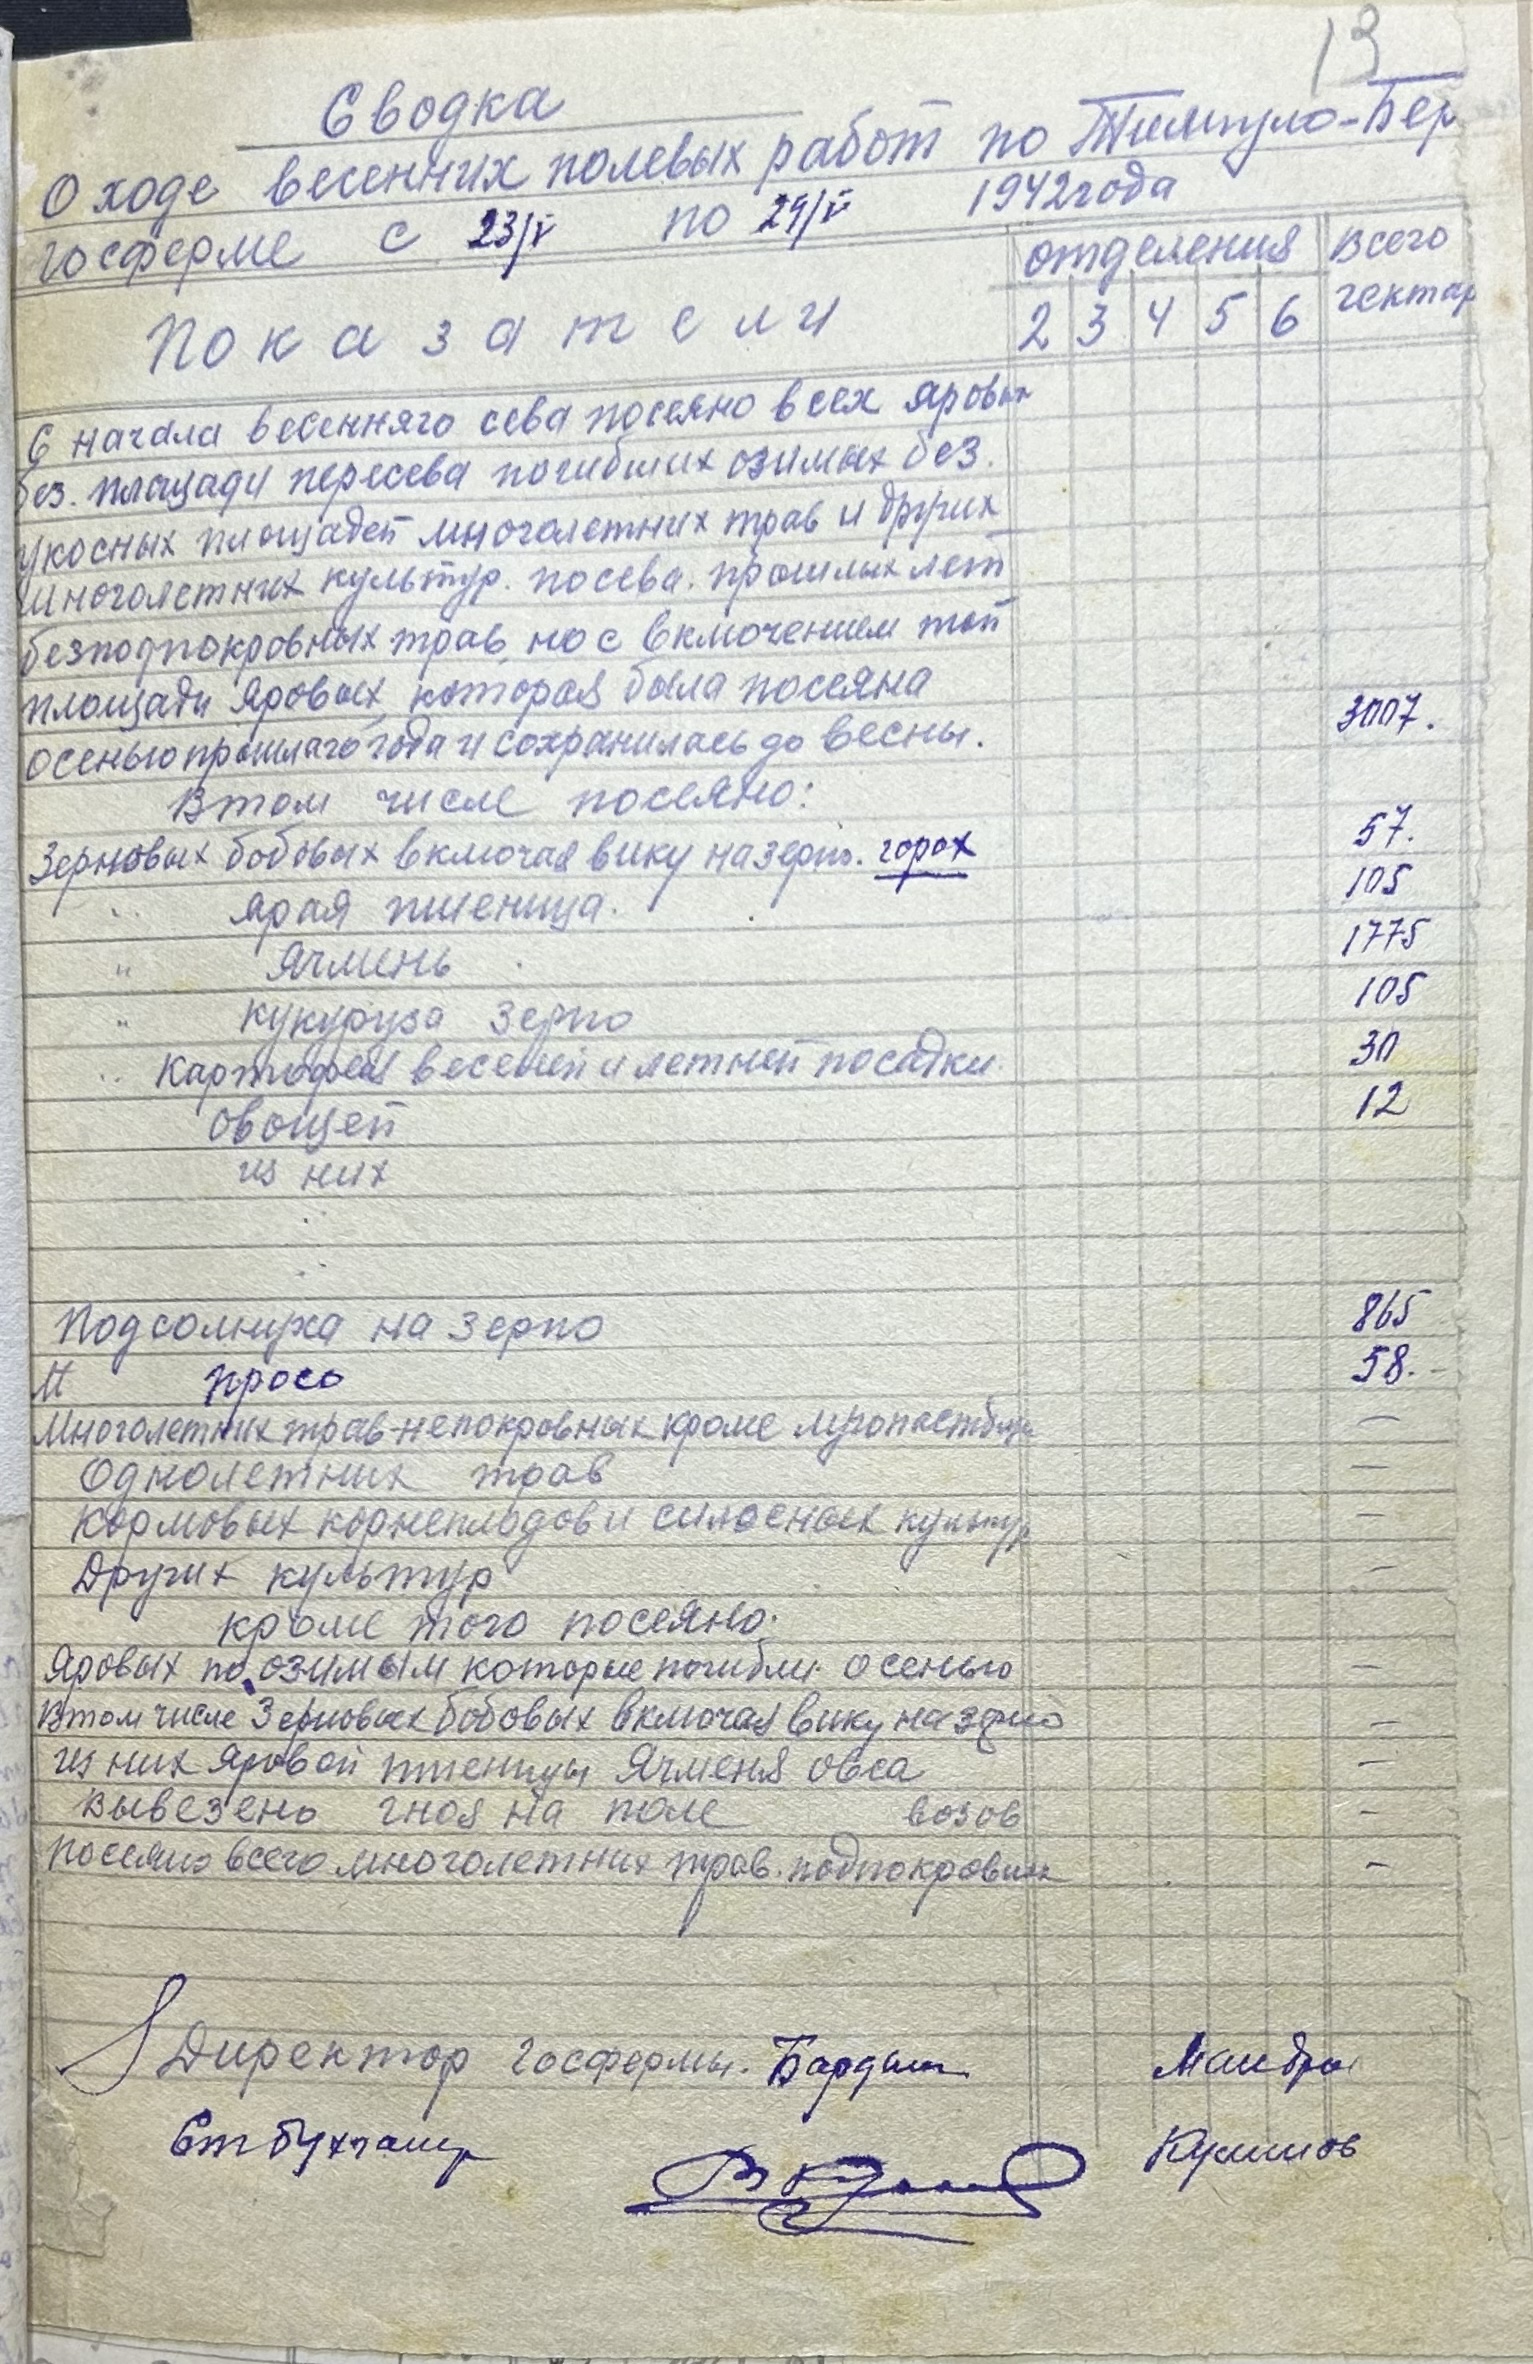 13
Сводка
О ходе весенних полевых работ по Тилигуло-Бер
госферме с 23/V по 29/V 1942 года
Показатели
отделения
всего гектар
2 3 4 5 6
С начала весенняго сева посеяно всех яровых
без. площади пересева погибших озимых без.
укосных площадей многолетних трав и других
многолетних культур. посева. прошлых лет
безподпокровных трав, но с включением той
площади яровых, которая была посеяна
осенью прошлаго года и сохранилась до весны. 3007.
В том числе посеяно:
Зерновых бобовых включая вику на зерно. горох 57.
" ярая пшеница. 105
" Ячмень 1775
" кукуруза зерно 105
" картофеля весеней и летней посадки 30
овощей 12
из них
Подсолнуха на зерно 865
И просо 58.-
Многолетних трав-непокровных кроме —
Однолетних трав —
Кормовых корнеплодов и силосных культур —
Других культур —
кроме того посеяно:
Яровых по озимым которые погибли осенью —
В том числе Зерновых бобовых включая вику на зерно —
из них яровой пшеницы Ячменя овса —
Вывезено гноя на поле возов -
посеяно всего многолетних трав. подпокровных —
Директор госфермы.
Ст бухгалтер